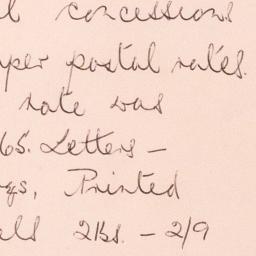 l concessions
per postal rates.
rate was
65. Letters –
gs, Printed
els 2lbs. – 2/9